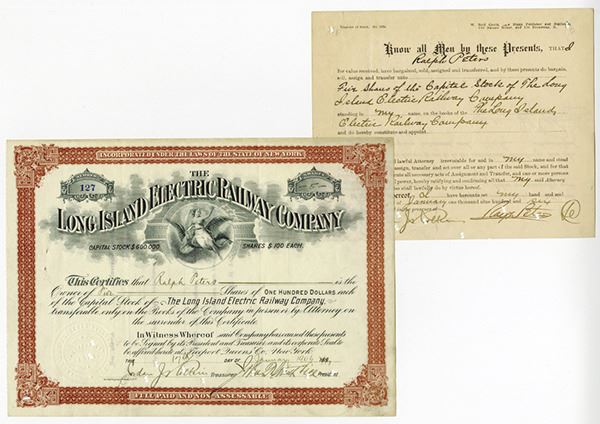 INCORPORATED UNDER THE LAWS OF THE STATE OF NEW YORK
127
THE
LONG ISLAND ELECTRIC RAILWAY COMPANY
CAPITAL STOCK $600000. SHARES $100 EACH.
This Certifies that Ralph Peters is the
Owner of Five Shares of ONE HUNDRED DOLLARS each
of the Capital Stock of The Long Island Electric Railway Company,
transferable only on the Books of the Company in person or by Attorney on
the surrender of this Certificate.
In Witness Whereof said Company has caused these presents
to be signed by its President and Treasurer and its corporate Seal to
be affixed hereto at Freeport Queens Co. New York
THIS DAY OF January
Treasurer President
FULL PAID AND NON-ASSESSABLE
Know all Men by these Presents, THAT I
Ralph Peters
for value received, have bargained, sold, assigned and transferred, and by these presents do bargain,
sell, assign and transfer unto
Five Shares of the Capital Stock of The Long
Island Electric Railway Company
standing in my name, on the books of the The Long Island
Electric Railway Company
and do hereby constitute and appoint
lawful Attorney irrevocable for and in my name and stead
assign, transfer and set over all or any part of the said Stock, and for that
all necessary acts of Assignment and Transfer, and one or more persons
hereby ratifying and confirming all that my said Attorney
shall lawfully do by virtue hereof.
I have hereunto set my hand and
January one thousand nine hundred and Six
Ralph Peters